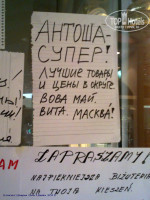 TOP Hotels
АНТОША-
СУПЕР!
ЛУЧШИЕ ТОВАРЫ
И ЦЕНЫ В ОКРУГЕ.
ВОВА МАЙ.
ВИТА. МАСКВА!
ZAPRASZAMY!
NAJPIĘKNIEJSZA BIŻUTERIA
NA TWOJĄ KIESZEŃ.